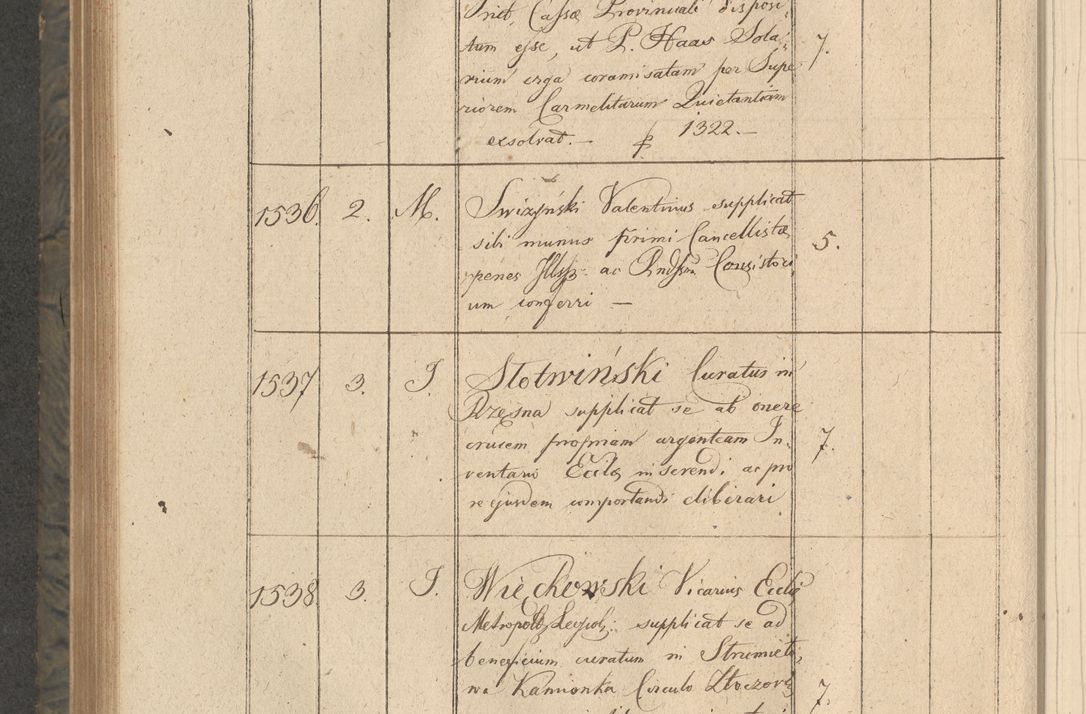 Trict. Cassæ Provinciali disposi-
tum esse, ut P. Haas Sola-
rium erga coramisatam per Supe
riorem Carmelitarum Quietantiam
exsolvat. — 1322. —
7.
1536. 2. M. Swizyński Valentinus supplicat
sibi munus primi Cancellistæ
penes Illss: ac Rndssm Consistori
um conferri —
5.
1537 3. J. Słotwiński Curatus in
Rzęsna supplicat se ab onere
crucem propriam argenteam In-
ventario Eccl꜀æ inserendi ac pro
re ejusdem comportandi eliberari
7.
1538 3. J. Więchowski Vicarius Eccl꜀æ
Metropolt: Leopol: supplicat se ad
beneficium curatum in Strumieto-
wa Kamionka Circulo Złoczov:
7.